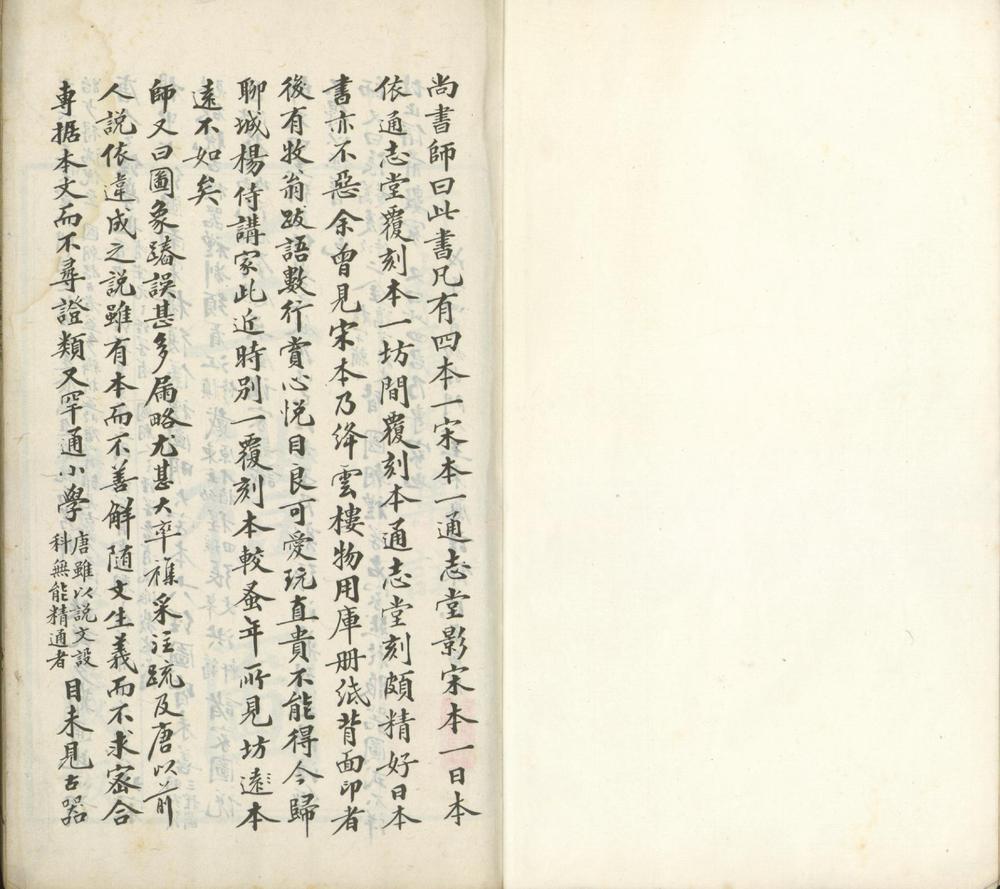 尚書師曰此書凡有四本一宋本一通志堂影宋本一日本
依通志堂覆刻本一坊間覆刻本通志堂刻頗精好日本
書亦不惡余曾見宋本乃絳雲樓物用庫冊紙背面印者
後有牧翁跋語數行賞心悅目良可愛玩直貴不能得今歸
聊城楊侍講家此近時別一覆刻本較蚤年所見坊本
遠不如矣
師又曰圖象蹖誤甚多屚略尤甚大率襍采注疏及唐以前
人說依違成之說雖有本而不善解隨文生義而不求密合
専据本文而不尋證類又罕通小學唐雖以說文設
科無能精通者目未見古器